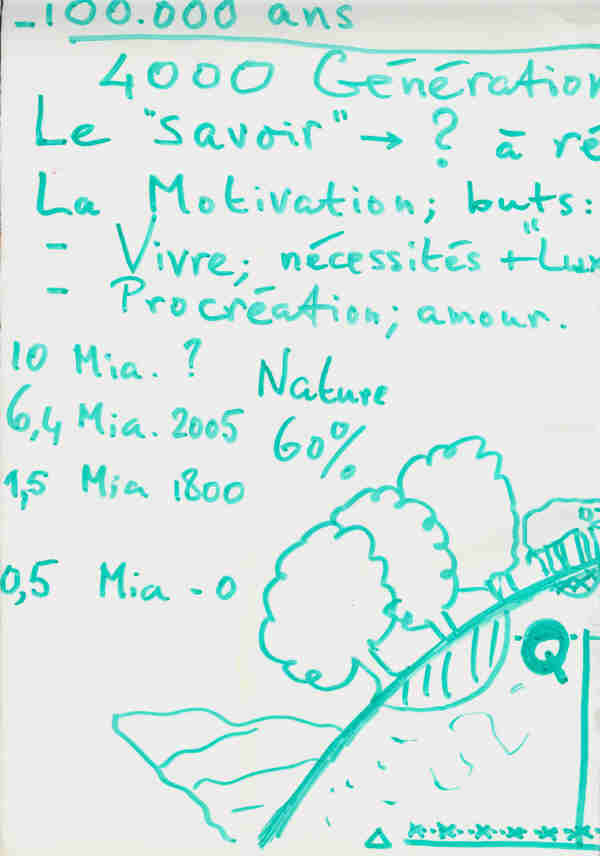 -100.000 ans
4000 Génération
Le "savoir" → ? à ré
La Motivation; buts:
- Vivre; nécessités + "Lux
- Procréation; amour.
10 Mia. ?
Nature
6,4 Mia. 2005
60%
1,5 Mia 1800
0,5 Mia - 0
Q